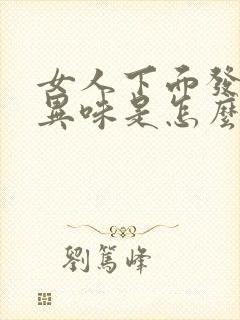 女人下面發
異味是怎麼
劉篤峰